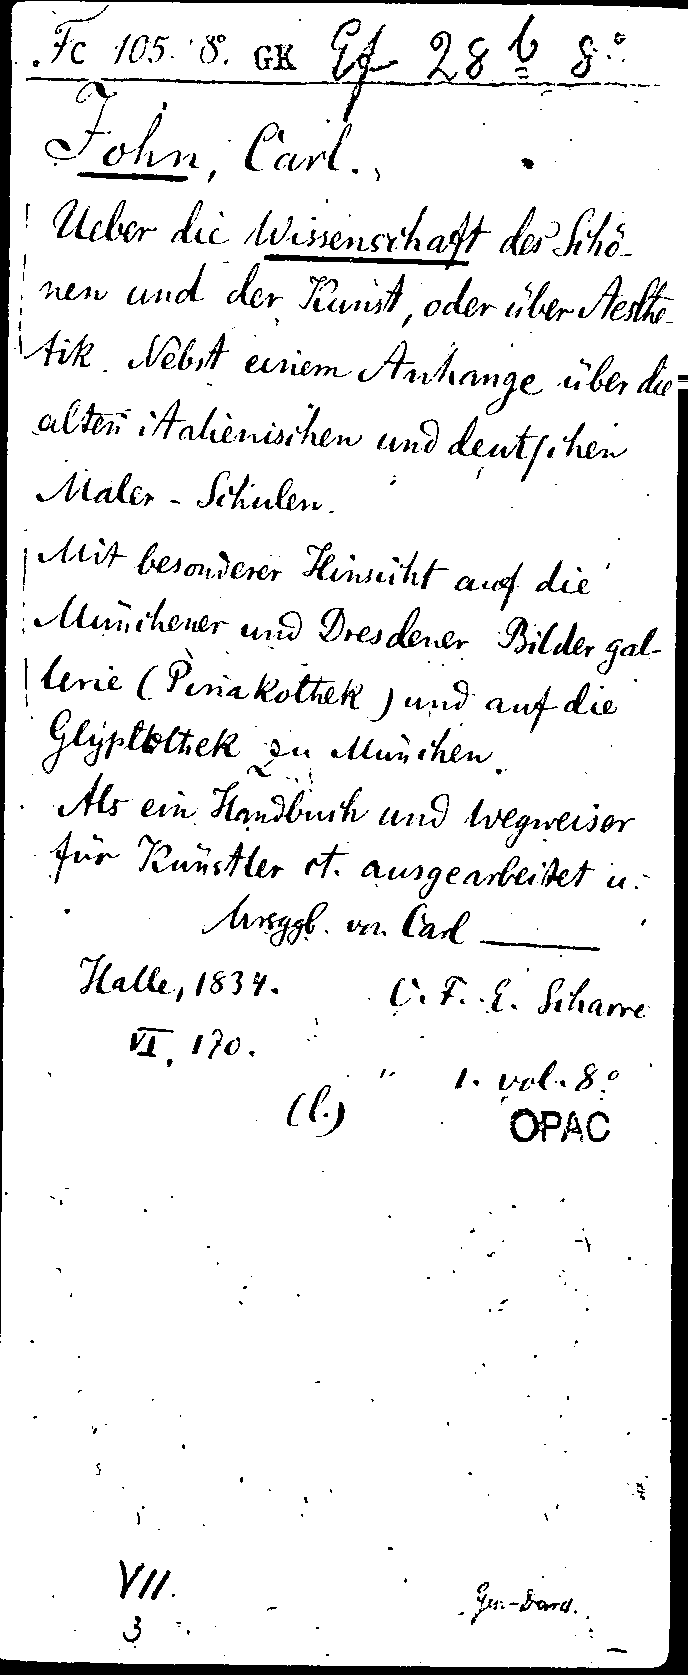 Fc 105. 8°. GK Ef 28 b 8°
John, Carl.
Ueber die Wissenschaft des Schö-
nen und der Kunst, oder über Aesthe-
tik. Nebst einem Anhange über die
alten italienischen und deutschen
Maler-Schulen.
Mit besonderer Hinsicht auf die
Münchener und Dresdener Bildergal-
lerie (Pinakothek) und auf die
Glyptothek zu München.
Als ein Handbuch und Wegweiser
für Künstler et. ausgearbeitet u.
von Carl ———
Halle, 1834. C. F. E. Scharre
VI, 170.
" 1. vol. 8°
(l.)
OPAC
VII.
3